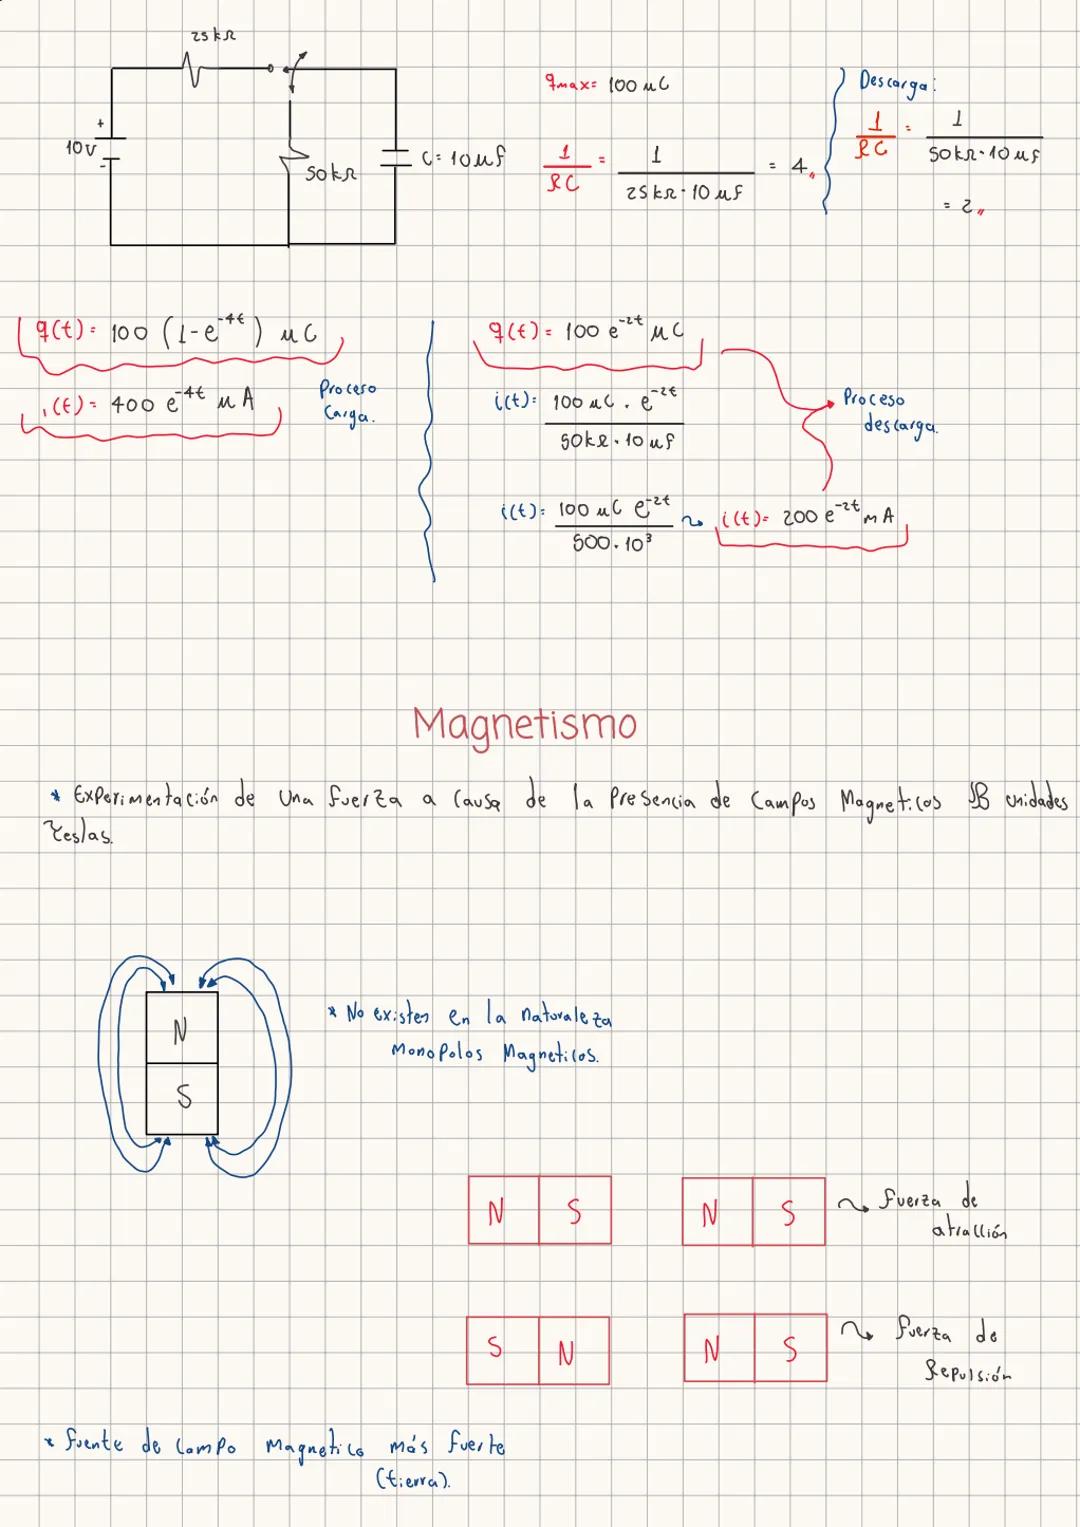 25kΩ
10V
+
-
50kΩ
C= 10μf
qmax= 100μC
1/RC = 1/(25kΩ·10μf) = 4
Descarga:
1/RC = 1/(50kΩ·10μf)
= 2
q(t)= 100 (1-e^-4t) μC
i(t)= 400 e^-4t μA
Proceso
Carga.
q(t)= 100 e^-2t μC
i(t)= 100μC . e^-2t / 50kΩ.10μf
i(t)= 100μC e^-2t / 500.10³
i(t)= 200 e^-2t mA
Proceso
descarga.
Magnetismo
* Experimentación de una fuerza a causa de la Presencia de Campos Magneticos B unidades
Teslas.
N
S
* No existen en la naturaleza
Monopolos Magneticos.
N S N S
fuerza de
atracción
S N N S
fuerza de
Repulsión
* fuente de campo Magnetico más fuerte
(tierra).